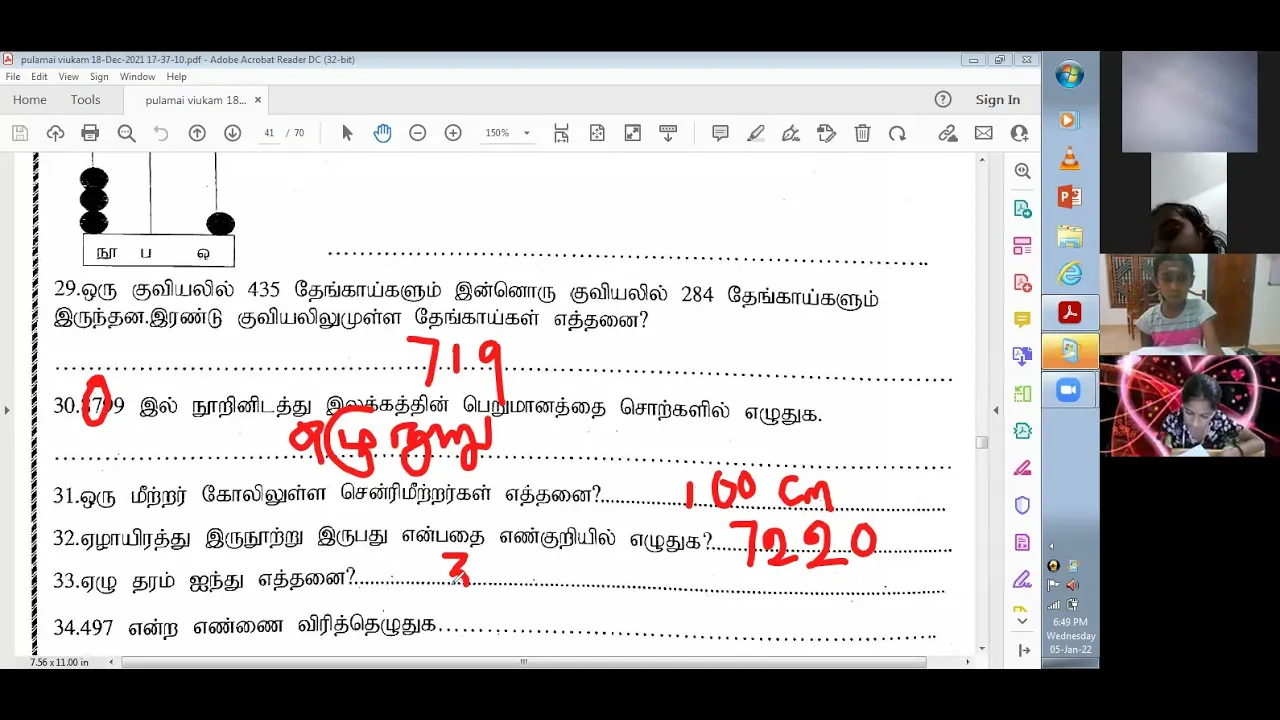 pulamai viukam 18-Dec-2021 17-37-10.pdf - Adobe Acrobat Reader DC (32-bit)
File Edit View Sign Window Help
Home Tools pulamai viukam 18... × Sign In
41 / 70 150%
நூ ப ஒ
29.ஒரு குவியலில் 435 தேங்காய்களும் இன்னொரு குவியலில் 284 தேங்காய்களும்
இருந்தன.இரண்டு குவியலிலுமுள்ள தேங்காய்கள் எத்தனை?
719
30.8799 இல் நூறினிடத்து இலக்கத்தின் பெறுமானத்தை சொற்களில் எழுதுக.
0
எழு நூறு
31.ஒரு மீற்றர் கோலிலுள்ள சென்ரிமீற்றர்கள் எத்தனை? 100 cm
32.ஏழாயிரத்து இருநூற்று இருபது என்பதை எண்குறியில் எழுதுக? 7220
33.ஏழு தரம் ஐந்து எத்தனை? 3
34.497 என்ற எண்ணை விரித்தெழுதுக
7.56 x 11.00 in
6:49 PM
Wednesday
05-Jan-22